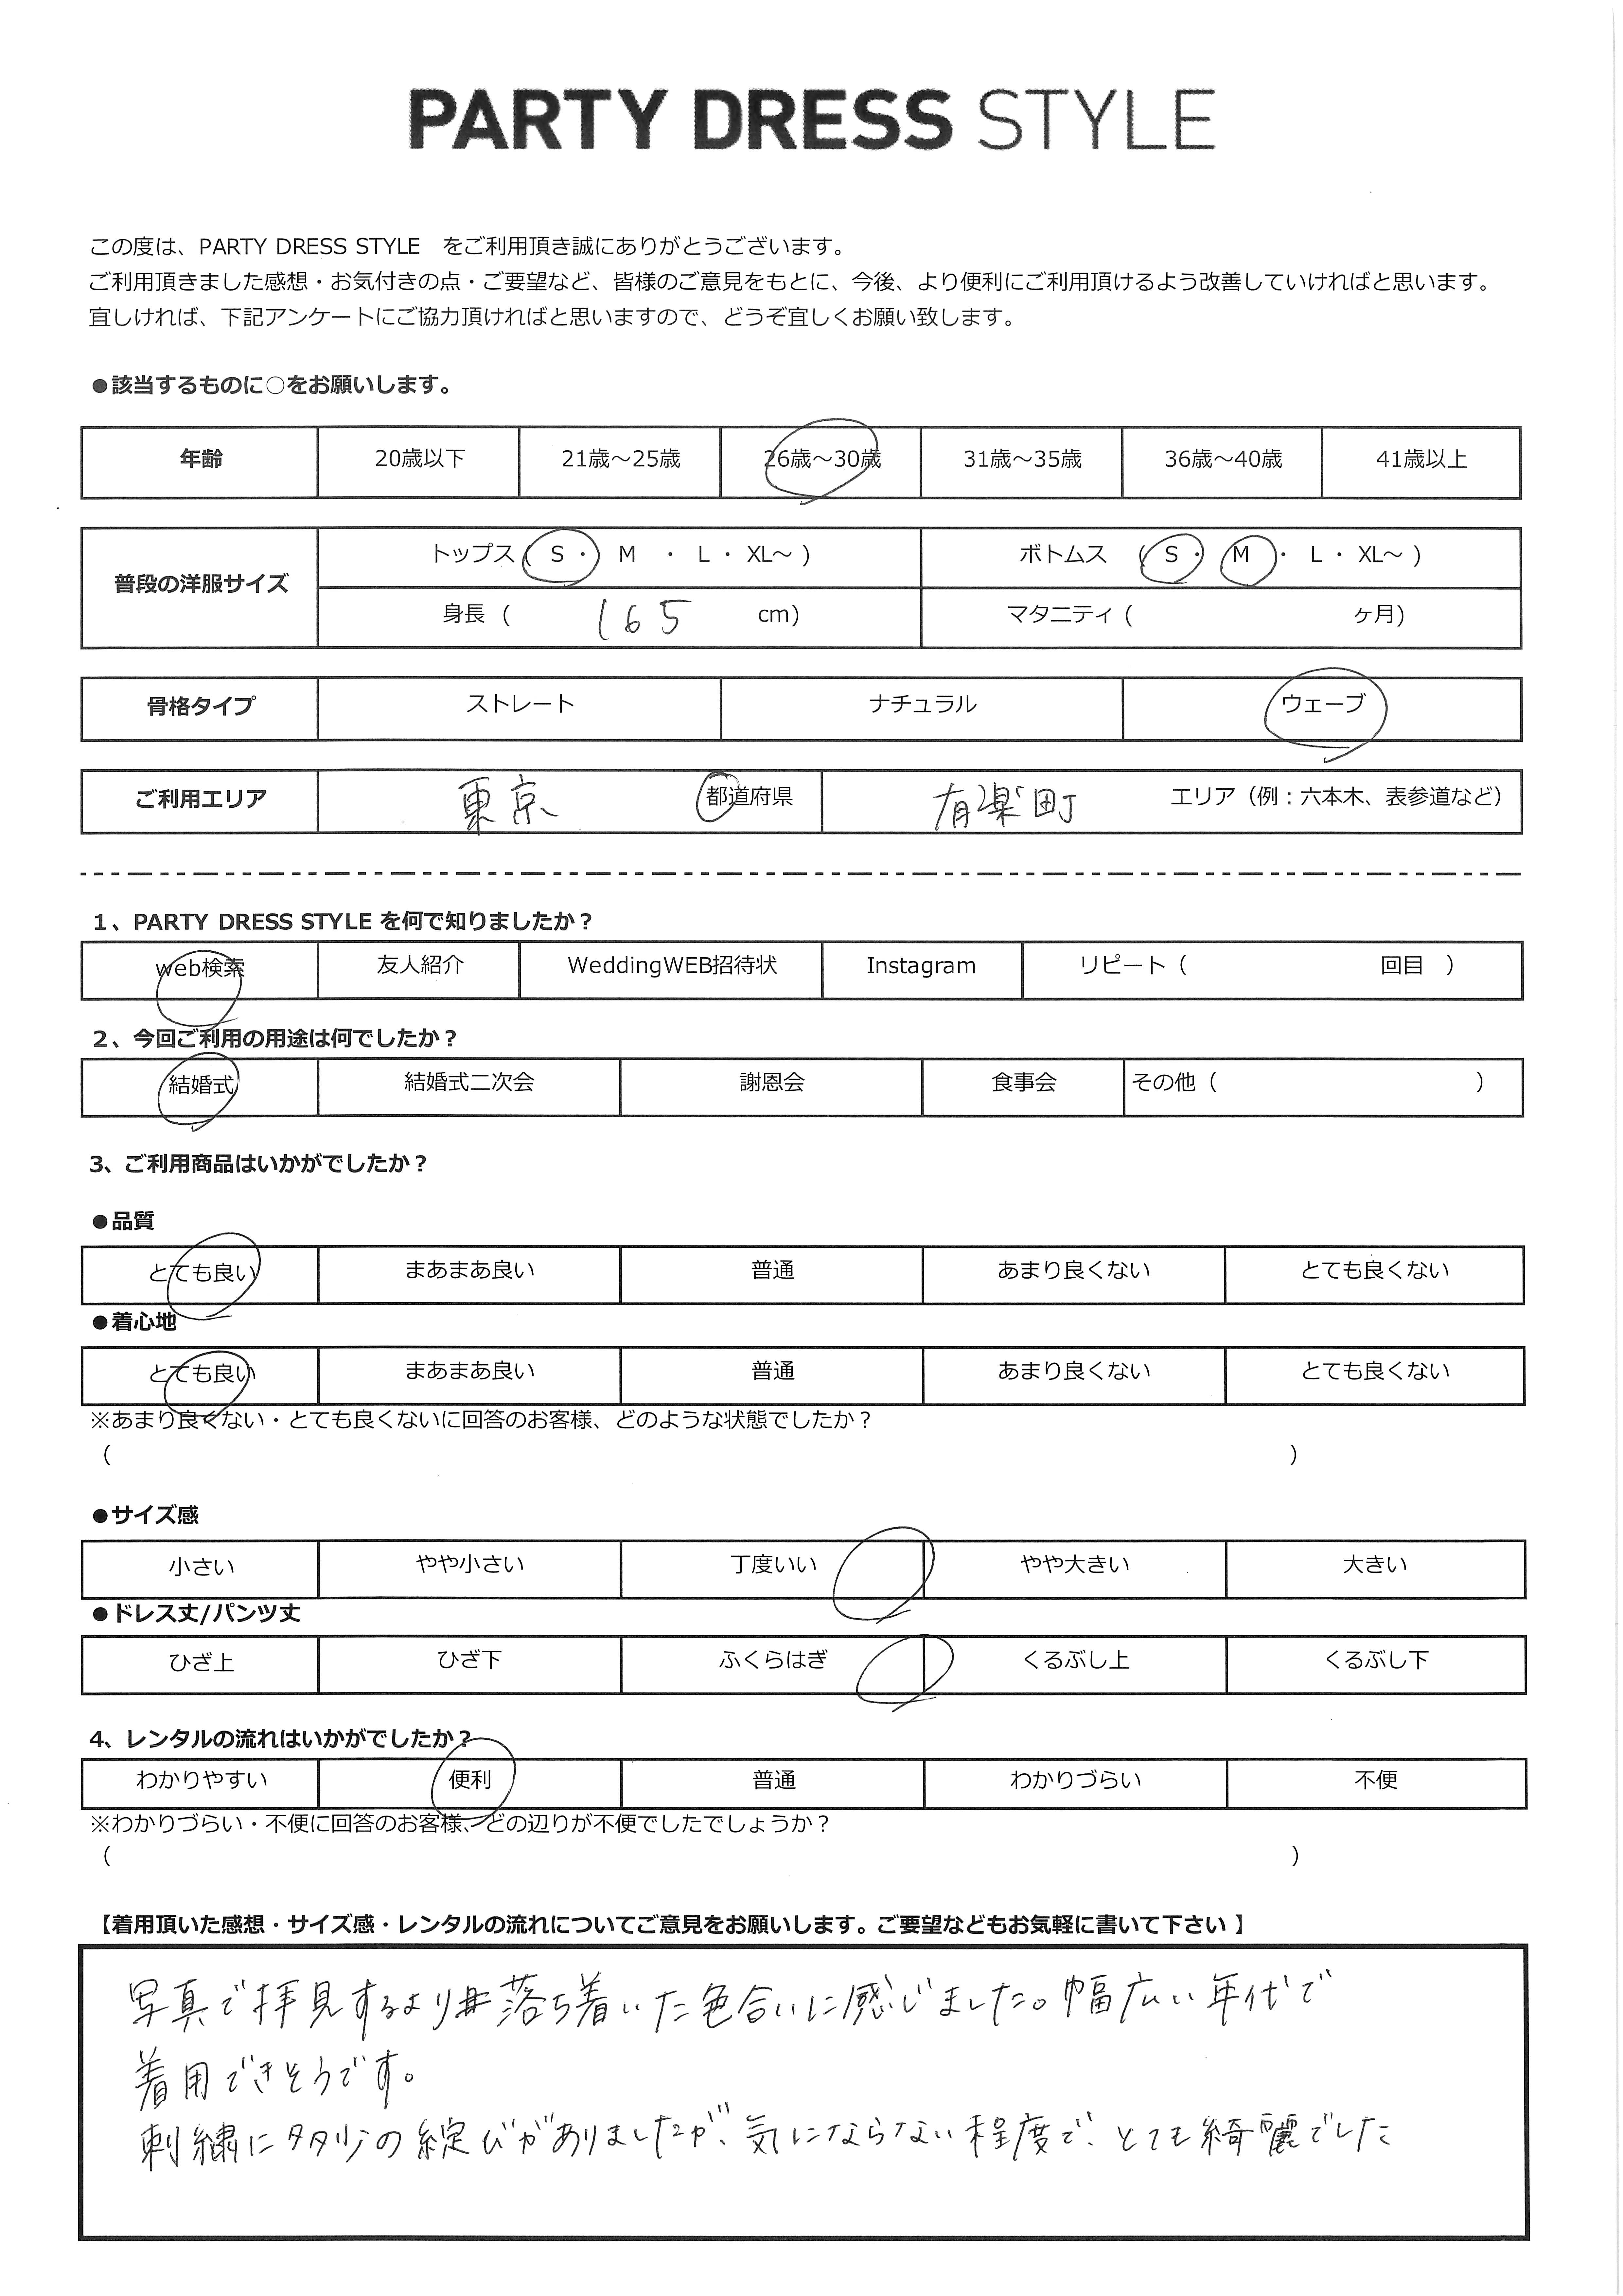 PARTY DRESS STYLE
この度は、PARTY DRESS STYLE をご利用頂き誠にありがとうございます。
ご利用頂きました感想・お気付きの点・ご要望など、皆様のご意見をもとに、今後、より便利にご利用頂けるよう改善していければと思います。
宜しければ、下記アンケートにご協力頂ければと思いますので、どうぞ宜しくお願い致します。
●該当するものに○をお願いします。
年齢 20歳以下 21歳～25歳 26歳～30歳 31歳～35歳 36歳～40歳 41歳以上
普段の洋服サイズ
トップス ( S ・ M ・ L ・ XL～ ) ボトムス ( S ・ M ・ L ・ XL～ )
身長 ( 165 cm) マタニティ ( ヶ月)
骨格タイプ ストレート ナチュラル ウェーブ
ご利用エリア 東京 都道府県 有楽町 エリア（例：六本木、表参道など）
1、PARTY DRESS STYLE を何で知りましたか？
web検索 友人紹介 WeddingWEB招待状 Instagram リピート（ 回目 ）
2、今回ご利用の用途は何でしたか？
結婚式 結婚式二次会 謝恩会 食事会 その他（ ）
3、ご利用商品はいかがでしたか？
●品質
とても良い まあまあ良い 普通 あまり良くない とても良くない
●着心地
とても良い まあまあ良い 普通 あまり良くない とても良くない
※あまり良くない・とても良くないに回答のお客様、どのような状態でしたか？
（ ）
●サイズ感
小さい やや小さい 丁度いい やや大きい 大きい
●ドレス丈/パンツ丈
ひざ上 ひざ下 ふくらはぎ くるぶし上 くるぶし下
4、レンタルの流れはいかがでしたか？
わかりやすい 便利 普通 わかりづらい 不便
※わかりづらい・不便に回答のお客様、どの辺りが不便でしたでしょうか？
（ ）
【着用頂いた感想・サイズ感・レンタルの流れについてご意見をお願いします。ご要望などもお気軽に書いて下さい 】
写真で拝見するより落ち着いた色合いに感じました。幅広い年代で
着用できそうです。
刺繍に多少の綻びがありましたが、気にならない程度で、とても綺麗でした